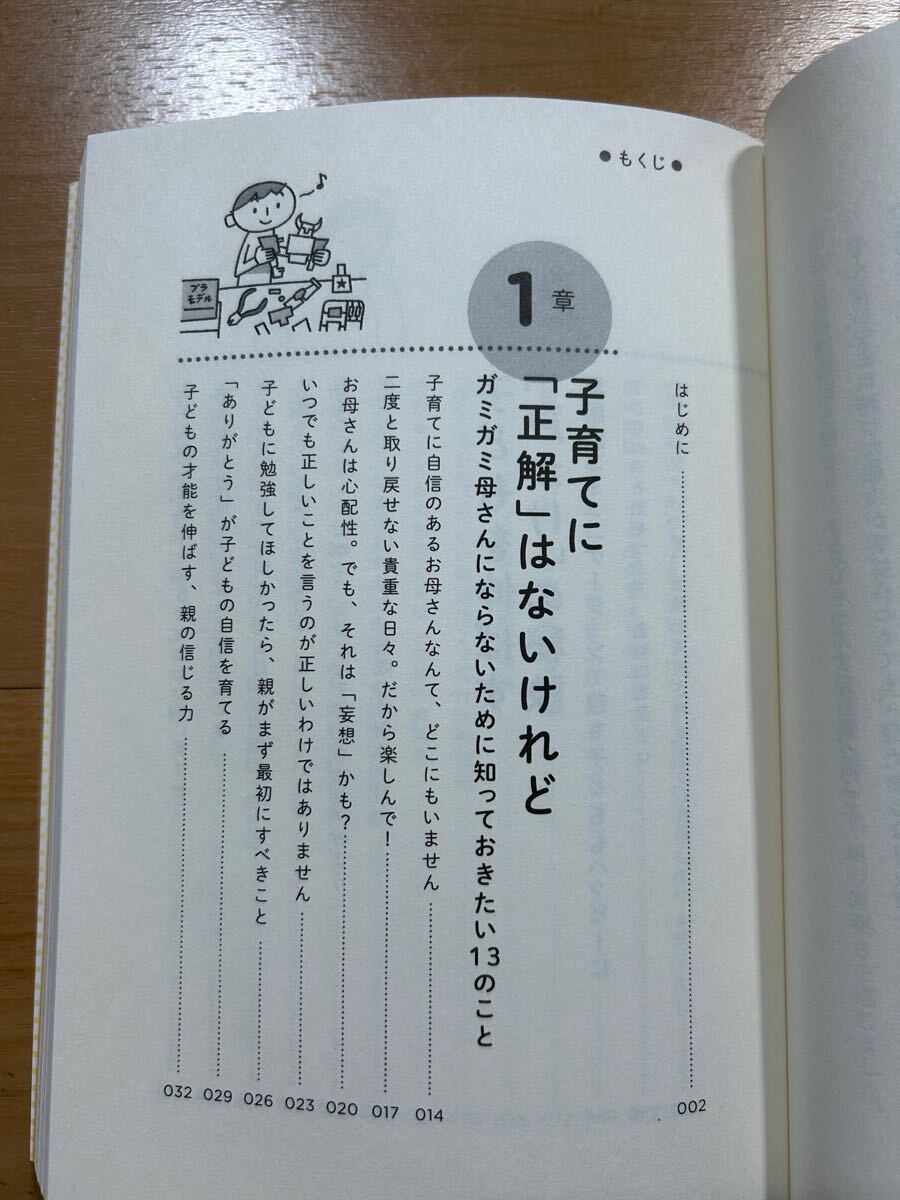 ●もくじ●
はじめに……002
1章
子育てに
「正解」はないけれど
ガミガミ母さんにならないために知っておきたい13のこと
子育てに自信のあるお母さんなんて、どこにもいません……014
二度と取り戻せない貴重な日々。だから楽しんで!……017
お母さんは心配性。でも、それは「妄想」かも?……020
いつでも正しいことを言うのが正しいわけではありません……023
子どもに勉強してほしかったら、親がまず最初にすべきこと……026
「ありがとう」が子どもの自信を育てる……029
子どもの才能を伸ばす、親の信じる力……032
プラ
モデル